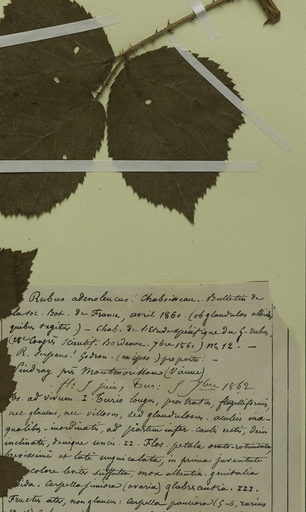 Rubus adenoleucus! Chaboisseau. Bulletin de
la soc. Bot. de France, avril 1860. (ob glandulas albas,
quibus tegitur) — Chab. de l'étude spécifique du G. rubus.
Congrès scientif. Bordeaux, 7bre 1861) No 12. —
R. Godron. parte. —
Pindray près Montmorillon (Vienne)
fl: 5 juin, 7bre 1862
Obs. ad vivum. I Turio longus, prostratus, flagelliformis,
nec glaucus, nec villosus, sed glandulosus. aculei inæ-
quales, inordinati, ad partem infer. caulis recti, dein
inclinati, denique unci II. Flos. petala ovato-rotundata,
brevissime et late unguiculata, in prima juventute
colore læte suffulta, mox albentia. genitalia
Carpella juniora (ovaria) glaberrima. III.
Fructus ater, non glaucus: Carpella pauciora (5-6, rarius